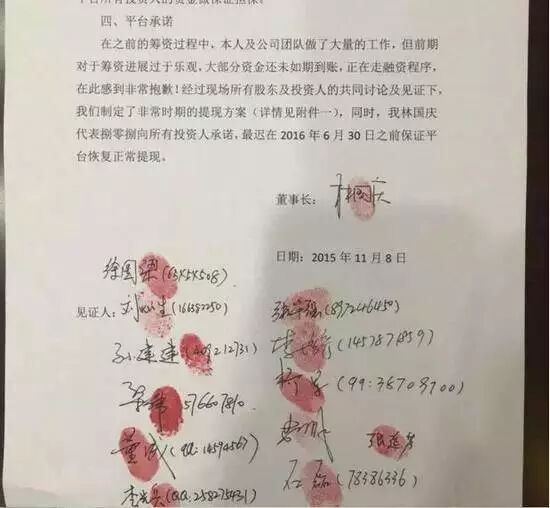 平台所有投资人的资金做保证担保。
四、平台承诺
在之前的筹资过程中，本人及公司团队做了大量的工作，但前期
对于筹资进展过于乐观，大部分资金还未如期到账，正在走融资程序，
在此感到非常抱歉！经过现场所有股东及投资人的共同讨论及见证下，
我们制定了非常时期的提现方案（详情见附件一），同时，我林国庆
代表捌零捌向所有投资人承诺，最迟在 2016 年 6 月 30 日之前保证平
台恢复正常提现。
董事长：
日期：2015 年 11 月 8 日
徐国梁
见证人：刘 生(164382250)
孙建建
576607890
董成(QQ:14594567)
(QQ:258275431)
(897246450)
(1457871859)
石磊(78386336)